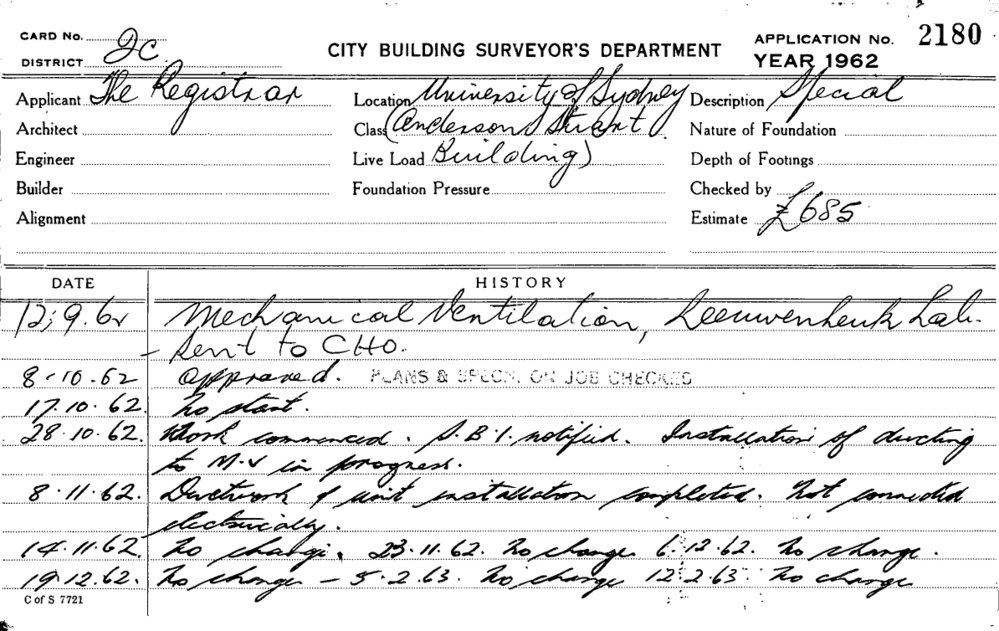 CARD No.
DISTRICT 2c
CITY BUILDING SURVEYOR'S DEPARTMENT
APPLICATION No. 2180
YEAR 1962
Applicant The Registrar
Location University of Sydney
Description Special
Architect
Class (Anderson Stuart
Nature of Foundation
Engineer
Live Load Building)
Depth of Footings
Builder
Foundation Pressure
Checked by
Alignment
Estimate £685
DATE HISTORY
12.9.62 Mechanical Ventilation, Leeuwenhenk Lab.
- Sent to CHO.
8-10.62 approved. PLANS & SPECN. ON JOB CHECKED
17.10.62. No start.
28.10.62. Work commenced. S.B.I. notified. Installation of ducting
to M.V in progress.
8.11.62. Ductwork & unit installation completed. Not connected
electrically.
14.11.62. No change. 23.11.62. No change 6.12.62. No change.
19.12.62. No change - 5.2.63. No change 12.2.63. No change
C of S 7721